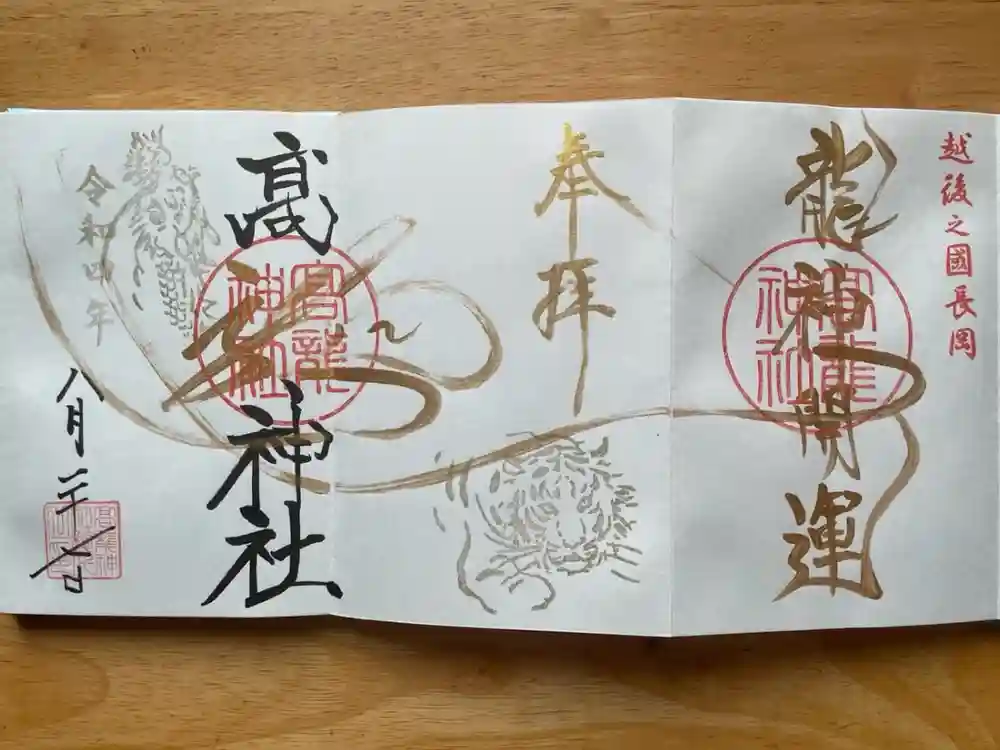 越後之國長岡
龍神開運
高龍神社
奉拝
高龍神社
高龍神社
令和四年
八月二十七日